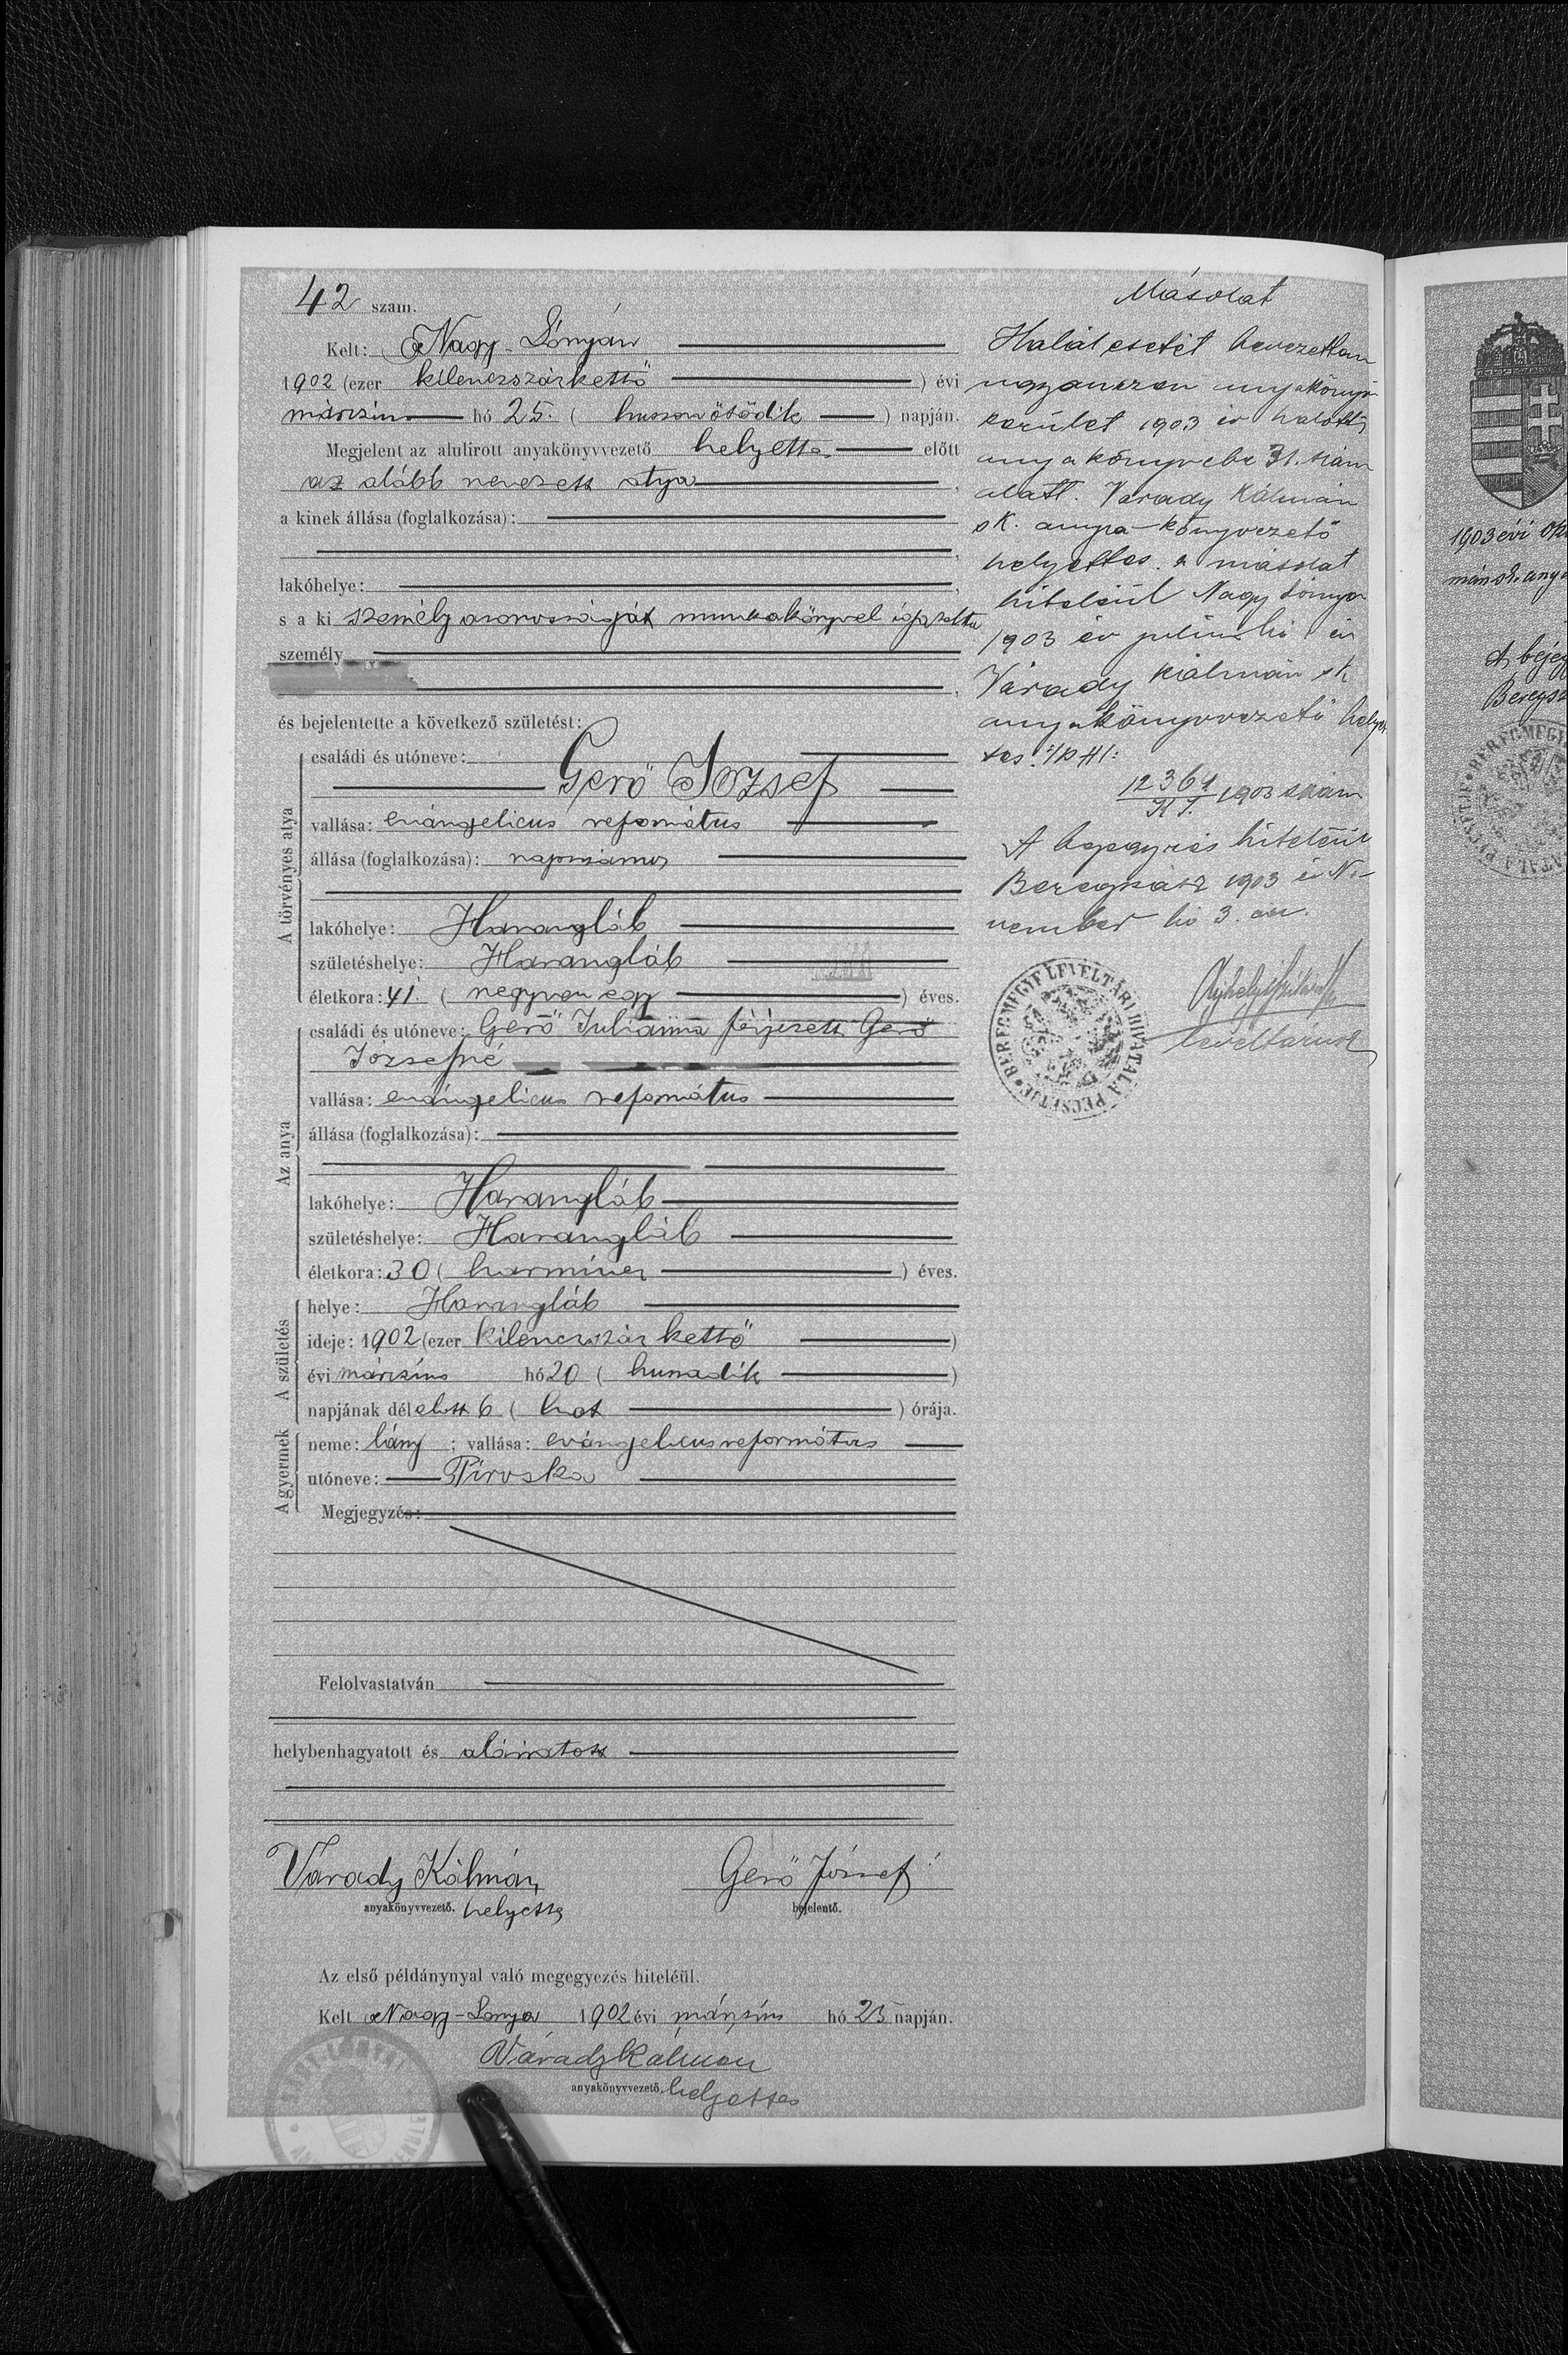 42 szám.
Kelt: Nagy-Lónyán
1902 (ezer kilenczszázkettő ) évi
márczius hó 25. ( huszonötödik ) napján.
Megjelent az alulirott anyakönyvvezető helyettes előtt
az alább nevezett atya ,
a kinek állása (foglalkozása):
lakóhelye: ,
s a ki személyazonosságát munkakönyvel igazolta
személy
és bejelentette a következő születést:
A törvényes atya
családi és utóneve:
Gerő József
vallása: evángelicus református
állása (foglalkozása): napszámos
lakóhelye: Harangláb
születéshelye: Harangláb
életkora: 41. ( negyvenegy ) éves.
Az anya
családi és utóneve: Gerő Julianna férjezett Gerő
Józsefné
vallása: evángelicus református
állása (foglalkozása):
lakóhelye: Harangláb
születéshelye: Harangláb
életkora: 30 ( harmincz ) éves.
A születés
helye: Harangláb
ideje: 1902 (ezer kilenczszáz kettő )
évi márczius hó 20 ( huszadik )
napjának délelőtt 6 ( hat ) órája.
A gyermek
neme: lány ; vallása: evángelicus református
utóneve: Piroska
Megjegyzés:
Felolvastatván
helybenhagyatott és aláiratott
Várady Kálmán Gerő József
anyakönyvvezető. helyettes bejelentő.
Az első példánynyal való megegyezés hiteléül.
Kelt Nagy-Lónya 1902 évi márczius hó 25 napján.
Várady Kálmán
anyakönyvvezető. helyettes
Másolat
Halál esetét bevezettem
ugyanezen anyakönyvi
kerület 1903 év halotti
anyakönyvebe 31. szám
alatt. Várady Kálmán
sk. anyakönyvezető
helyettes. a másolat
hiteléül Nagy Lónya
1903 év július hó én
Várady Kálmán sk
anyakönyvvezető helyet
tes. :/P H/:
1903 szám
A bejegyzés hiteléül
Beregszász 1903 év No-
vember hó 3. án.
levéltárnok
BEREGMEGYE LEVÉLTÁRI HIVATALA PECSÉTJE
1903 évi ok
mán sk. any
A bejeg
Beregsz